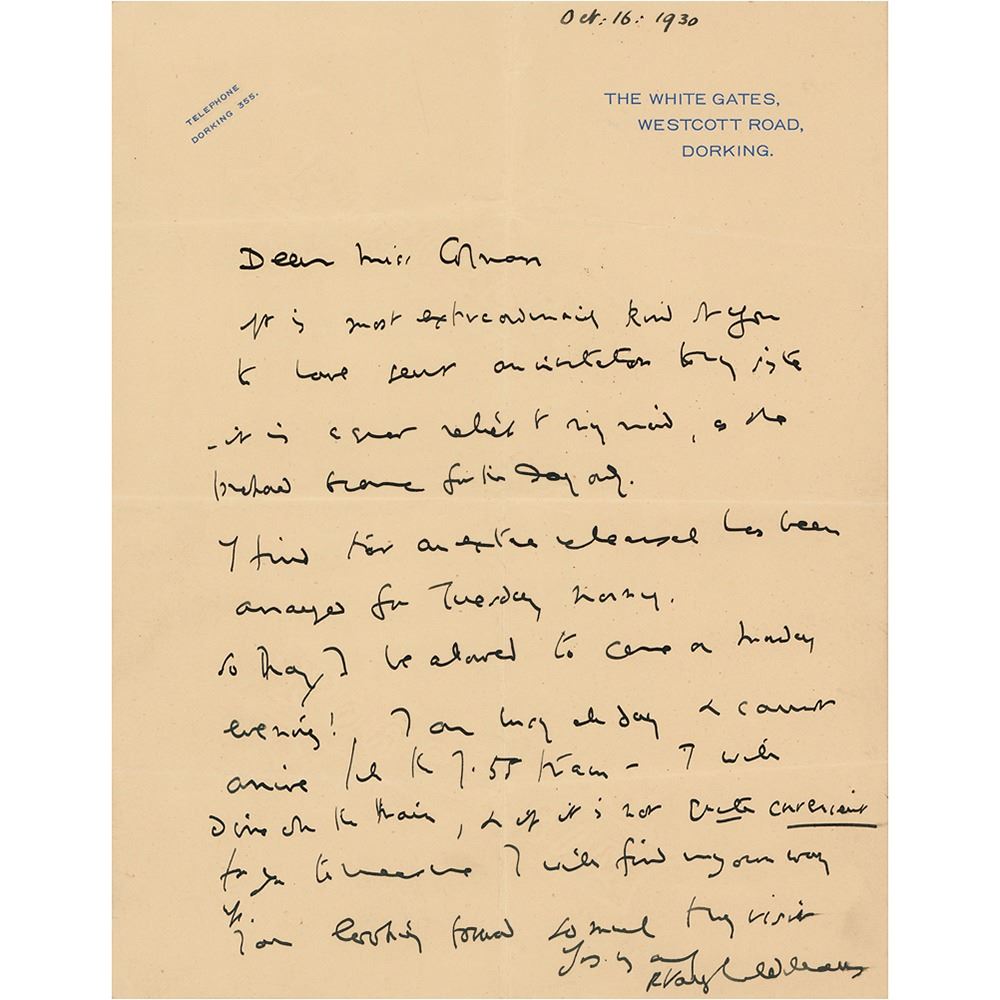 Oct: 16: 1930
TELEPHONE
DORKING 355.
THE WHITE GATES,
WESTCOTT ROAD,
DORKING.
Dear Miss Colman
It is most extraordinarily kind of you
to have sent an invitation to my sister
- it is a great relief to my mind, as she
to come for the day only.
I find that an extra rehearsal has been
arranged for Tuesday morning.
So may I be allowed to come on Monday
evening! I am busy all day & cannot
arrive till the 7.55 train - I will
dine on the train, & if it is not quite convenient
for you to meet me I will find my own way
up.
I am looking forward so much to my visit
Yrs
R Vaughan Williams